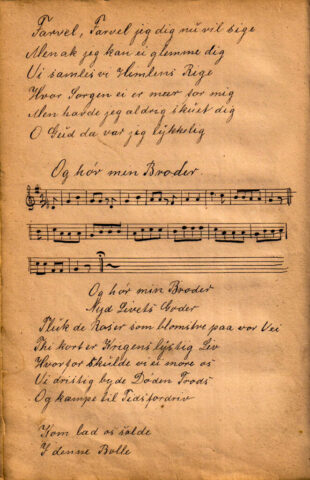 Farvel, Farvel jeg dig nu vil sige
Men ak jeg kan ei glemme dig
Vi samles vi Himlens Rige
Hvor Sorgen ei er mær for mig
Men havde jeg aldrig skuet dig
O Gud da var jeg lykkelig
Og hör min Broder
Og hör min Broder
Nyd Livets Goder
Plük de Roser som blomstre paa vor Vei
Thi kort er Krigens lystig Liv
Hvorfor skulde vi ei more os
Vi dristig byde Döden Trods
Og kampe til Tidsfordriv
Kom lad os
I denne Bolle